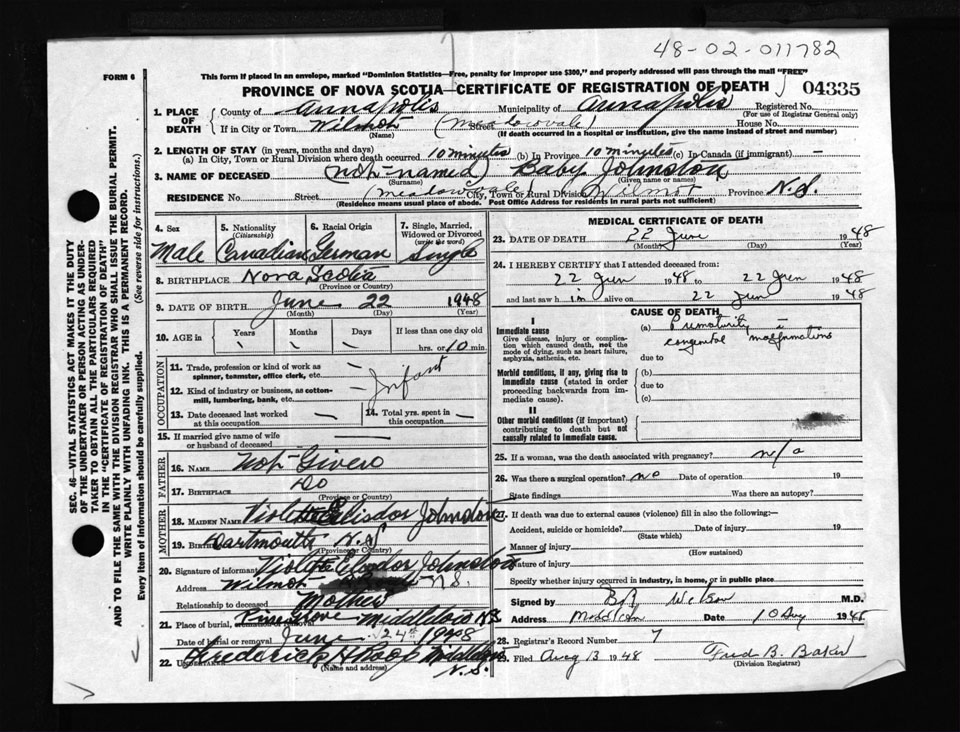 48-02-011782
FORM 6
This form if placed in an envelope, marked "Dominion Statistics—Free, penalty for improper use $300," and properly addressed will pass through the mail "FREE"
PROVINCE OF NOVA SCOTIA—CERTIFICATE OF REGISTRATION OF DEATH 04335
1. PLACE OF DEATH
County of Annapolis Municipality of Annapolis Registered No.
(For use of Registrar General only)
If in City or Town Wilmot Street (Meadowvale) House No.
(Name) (If death occurred in a hospital or institution, give the name instead of street and number)
2. LENGTH OF STAY (in years, months and days)
(a) In City, Town or Rural Division where death occurred 10 minutes (b) In Province 10 minutes (c) In Canada (if immigrant) —
3. NAME OF DECEASED (not named) Baby Johnston
(Surname) (Given name or names)
RESIDENCE No. Street (Meadowvale) City, Town or Rural Division Wilmot Province N.S.
(Residence means usual place of abode. Post Office Address for residents in rural parts not sufficient)
4. Sex 5. Nationality (Citizenship) 6. Racial Origin 7. Single, Married, Widowed or Divorced (write the word)
Male Canadian German Single
8. BIRTHPLACE Nova Scotia
(Province or Country)
9. DATE OF BIRTH June 22 1948
(Month) (Day) (Year)
10. AGE in Years Months Days If less than one day old
hrs. or 10 min.
OCCUPATION
11. Trade, profession or kind of work as spinner, teamster, office clerk, etc.
Infant
12. Kind of industry or business, as cotton-mill, lumbering, bank, etc.
13. Date deceased last worked at this occupation — 14. Total yrs. spent in this occupation —
15. If married give name of wife or husband of deceased
FATHER
16. NAME Not Given
17. BIRTHPLACE Do
(Province or Country)
MOTHER
18. MAIDEN NAME Johnston
19. Birthplace Dartmouth N.S
(Province or Country)
20. Signature of informant Johnston
Address Wilmot N.S.
Relationship to deceased Mother
21. Place of burial, cremation or removal Pine Grove Middleton N.S
Date of burial or removal June 24th 1948
22. Undertaker Frederick Middleton N.S.
(Name and address)
MEDICAL CERTIFICATE OF DEATH
23. DATE OF DEATH 22 June 1948
(Month) (Day) (Year)
24. I HEREBY CERTIFY that I attended deceased from:
22 Jun 1948 to 22 Jun 1948
and last saw him alive on 22 Jun 1948
CAUSE OF DEATH
I
Immediate cause
Give disease, injury or complication which caused death, not the mode of dying, such as heart failure, asphyxia, asthenia, etc.
(a) Prematurity
congenital malformations
due to
Morbid conditions, if any, giving rise to immediate cause (stated in order proceeding backwards from immediate cause).
(b)
due to
(c)
II
Other morbid conditions (if important) contributing to death but not causally related to immediate cause.
25. If a woman, was the death associated with pregnancy? n/a
26. Was there a surgical operation? no Date of operation 19
State findings Was there an autopsy?
27. If death was due to external causes (violence) fill in also the following:—
Accident, suicide or homicide? Date of injury 19
(State which)
Manner of injury
(How sustained)
Nature of injury
Specify whether injury occurred in industry, in home, or in public place
Signed by M.D.
Address Middleton Date 10 Aug 1948
28. Registrar's Record Number 7
Filed Aug 13 1948 Fred B. Baker
(Division Registrar)
SEC. 46—VITAL STATISTICS ACT MAKES IT THE DUTY
OF THE UNDERTAKER OR PERSON ACTING AS UNDER-
TAKER TO OBTAIN ALL THE PARTICULARS REQUIRED
IN THE "CERTIFICATE OF REGISTRATION OF DEATH"
AND TO FILE THE SAME WITH THE DIVISION REGISTRAR WHO SHALL ISSUE THE BURIAL PERMIT.
WRITE PLAINLY WITH UNFADING INK. THIS IS A PERMANENT RECORD.
Every item of information should be carefully supplied. (See reverse side for instructions.)